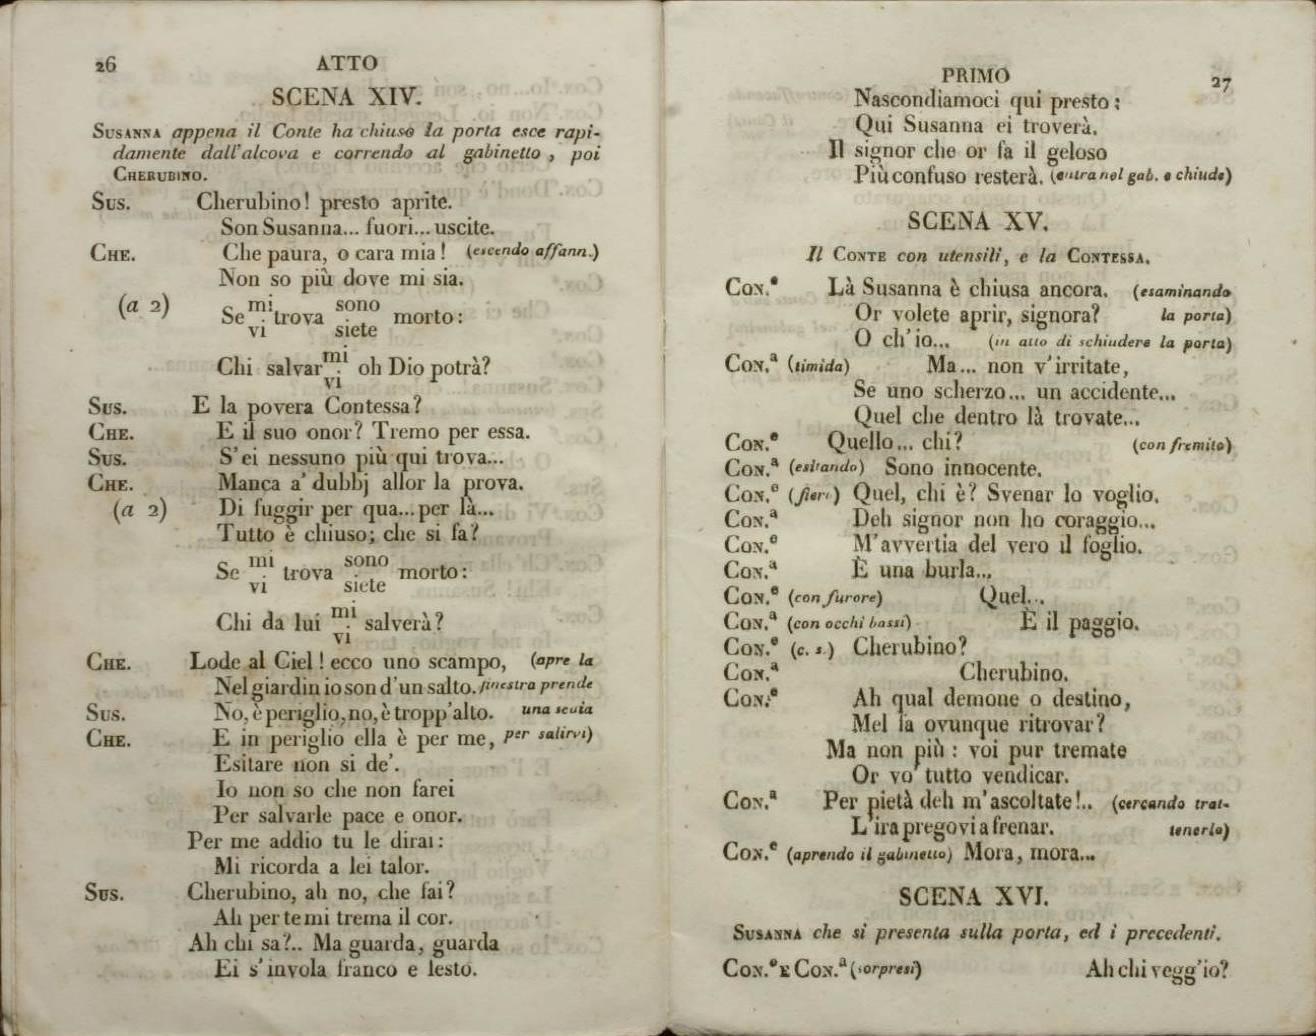 26
ATTO
SCENA XIV.
SUSANNA appena il Conte ha chiuso la porta esce rapi-
damente dall'alcova e correndo al gabinetto, poi
CHERUBINO.
SUS. Cherubino! presto aprite.
Son Susanna... fuori... uscite.
CHE. Che paura, o cara mia! (escendo affann.)
Non so più dove mi sia.
(a 2) Se mi trova sono morto:
vi siete
Chi salvar mi oh Dio potrà?
vi
SUS. E la povera Contessa?
CHE. E il suo onor? Tremo per essa.
SUS. S'ei nessuno più qui trova...
CHE. Manca a' dubbj allor la prova.
(a 2) Di fuggir per qua...per là...
Tutto è chiuso; che si fa?
Se mi trova sono morto:
vi siete
Chi da lui mi salverà?
vi
CHE. Lode al Ciel! ecco uno scampo, (apre la
Nel giardin io son d'un salto. finestra prende
SUS. No, è periglio, no, è tropp'alto. una sedia
CHE. E in periglio ella è per me, per salirvi)
Esitare non si de'.
Io non so che non farei
Per salvarle pace e onor.
Per me addio tu le dirai:
Mi ricorda a lei talor.
SUS. Cherubino, ah no, che fai?
Ah per te mi trema il cor.
Ah chi sa?.. Ma guarda, guarda
Ei s'invola franco e lesto.
PRIMO
27
Nascondiamoci qui presto:
Qui Susanna ei troverà.
Il signor che or fa il geloso
Più confuso resterà. (entra nel gab. e chiude)
SCENA XV.
Il CONTE con utensili, e la CONTESSA.
CON.e Là Susanna è chiusa ancora. (esaminando
Or volete aprir, signora? la porta)
O ch'io... (in atto di schiudere la porta)
CON.a (timida) Ma... non v'irritate,
Se uno scherzo... un accidente...
Quel che dentro là trovate...
CON.e Quello... chi? (con fremito)
CON.a (esitando) Sono innocente.
CON.e (fiero) Quel, chi è? Svenar lo voglio.
CON.a Deh signor non ho coraggio...
CON.e M'avvertia del vero il foglio.
CON.a È una burla...
CON.e (con furore) Quel...
CON.a (con occhi bassi) È il paggio.
CON.e (c. s.) Cherubino?
CON.a Cherubino.
CON.e Ah qual demone o destino,
Mel fa ovunque ritrovar?
Ma non più: voi pur tremate
Or vo' tutto vendicar.
CON.a Per pietà deh m'ascoltate!.. (cercando trat-
L'ira pregovi a frenar. tenerlo)
CON.e (aprendo il gabinetto) Mora, mora...
SCENA XVI.
SUSANNA che si presenta sulla porta, ed i precedenti.
CON.e E CON.a (sorpresi) Ah chi vegg'io?